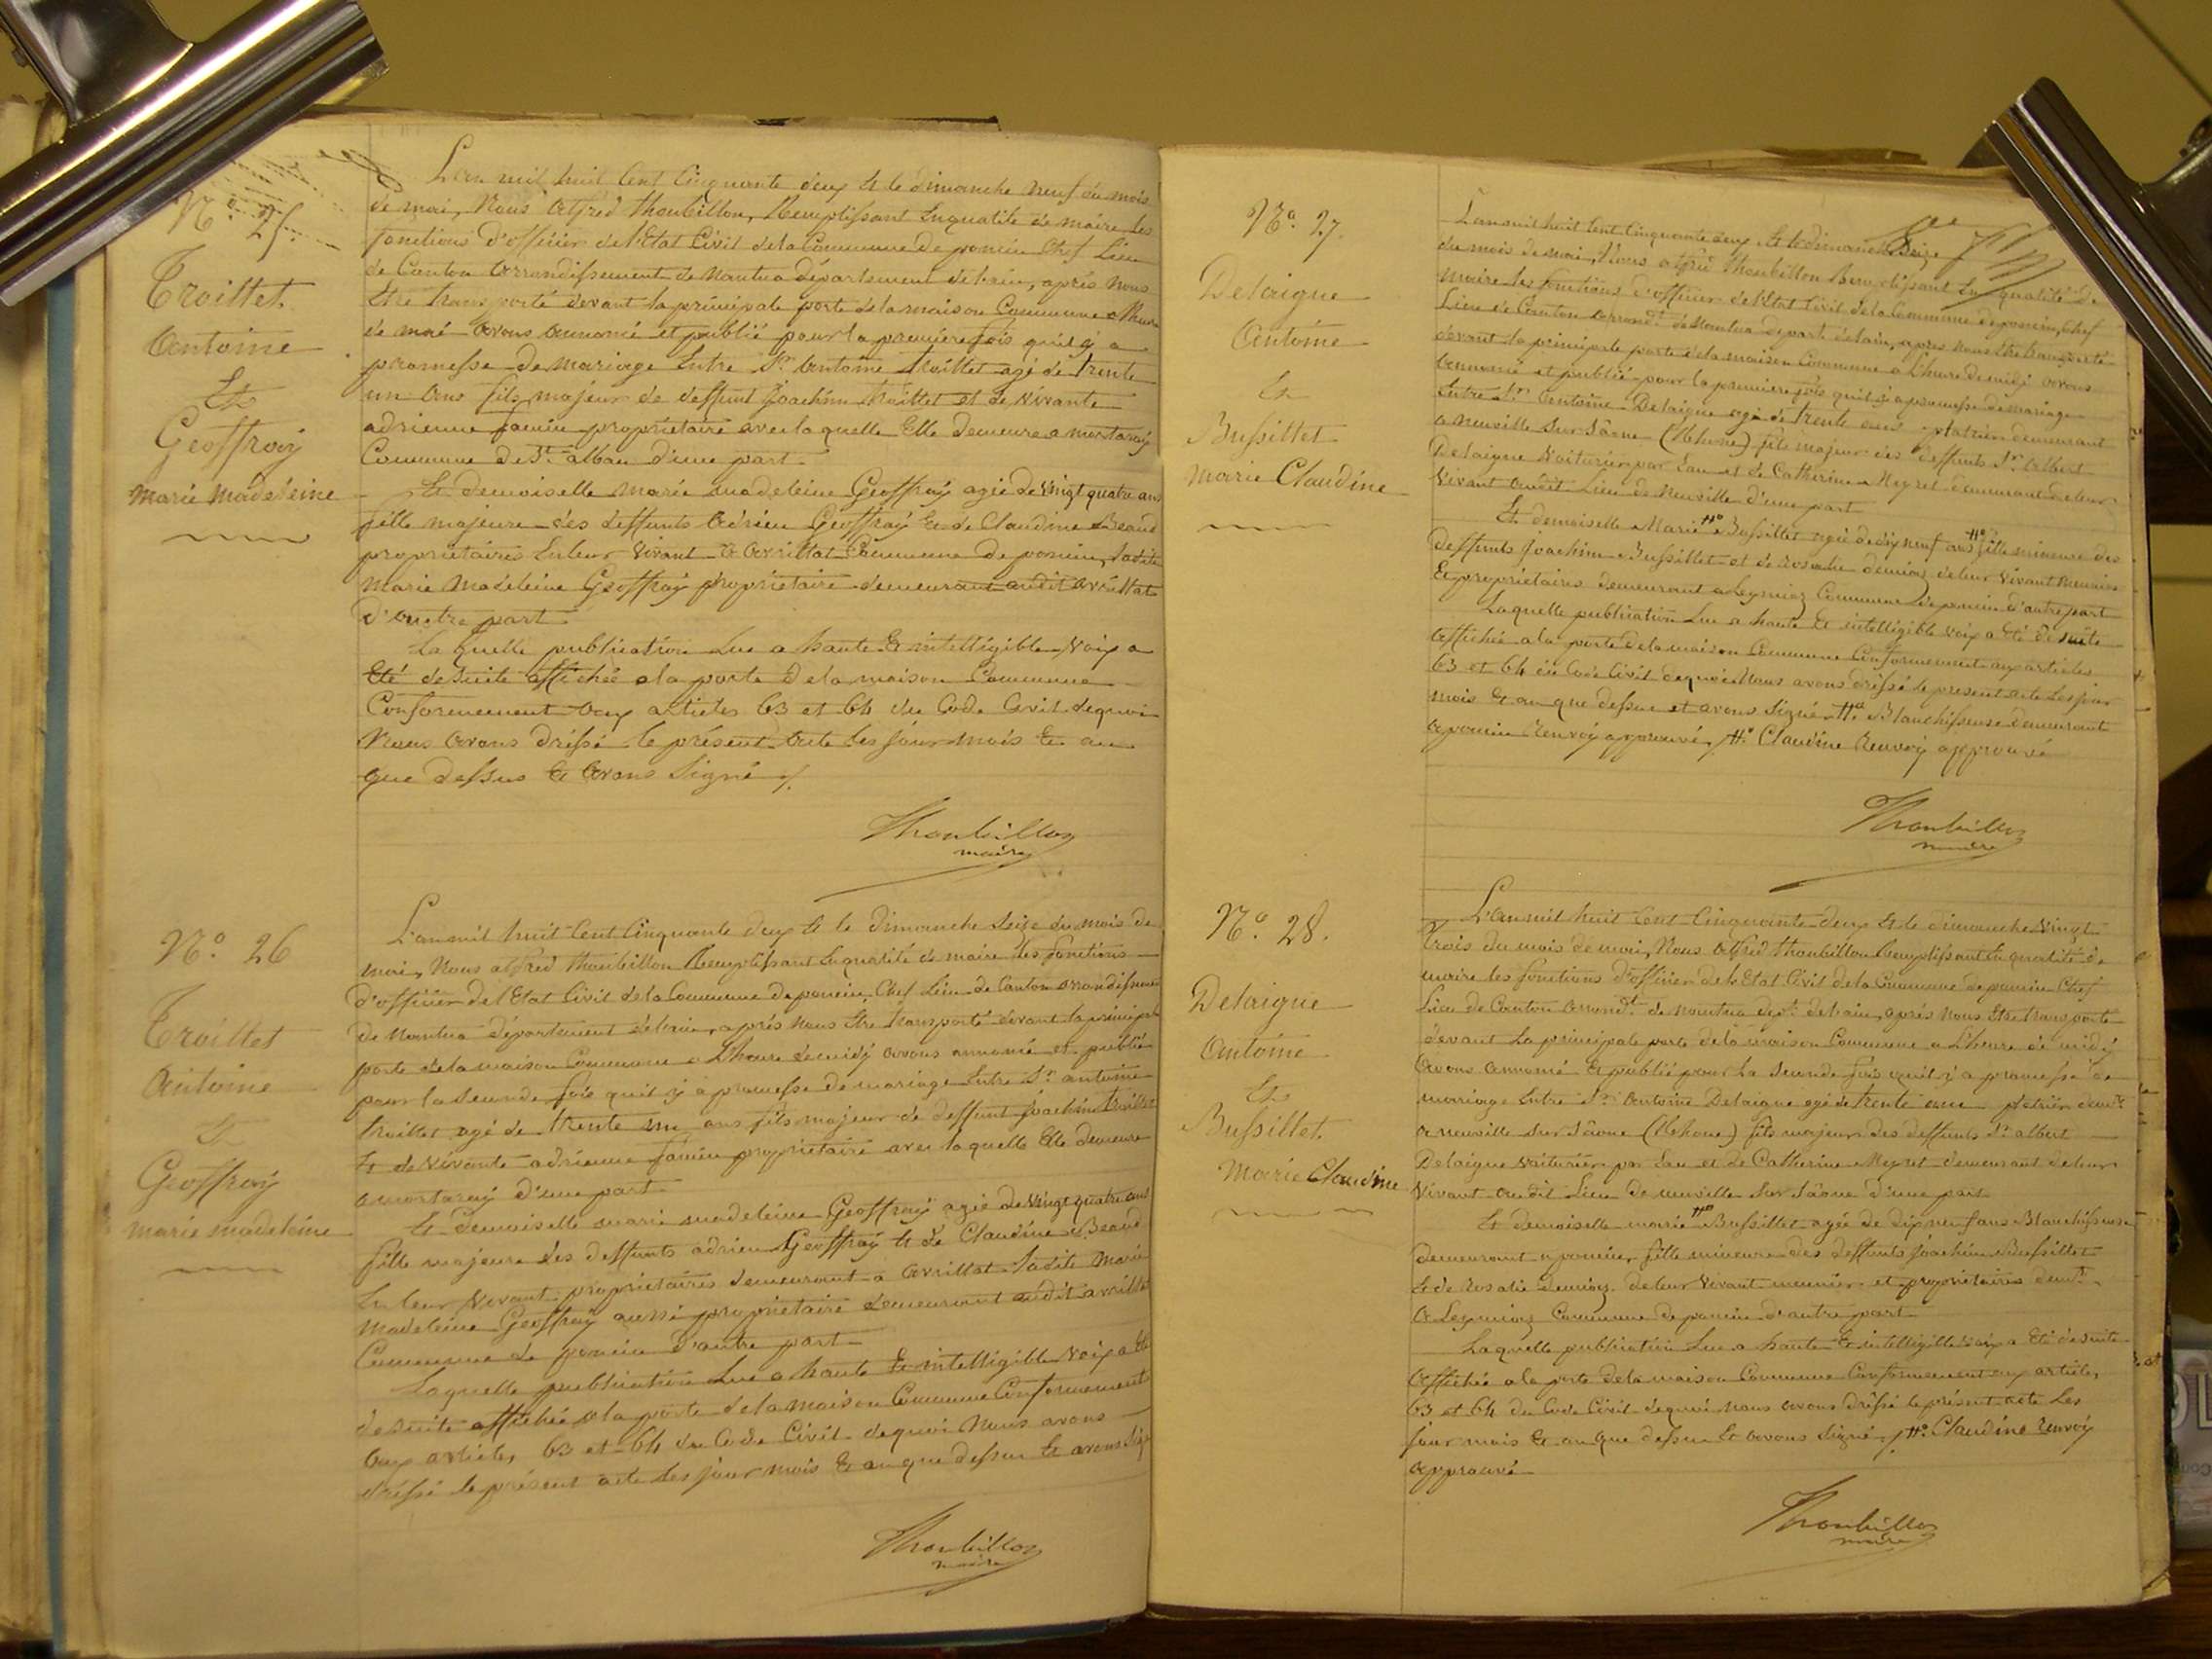 N.° 25.
Troillet
Antoine
Et
Geoffray
marie madeleine
L'an mil huit Cent Cinquante deux Et le dimanche neuf du mois
de mai, Nous Alfred Thoubillon, Remplissant Enqualité de maire les
fonctions d'officier de l'Etat Civil de la Commune de poncin Chef Lieu
de Canton arrondissement de Nantua département de l'ain, après nous
Etre transporté devant la principale porte de la maison Commune a l'heure
de midi avons annoncé et publié pour la première fois qu'il y a
promesse de mariage Entre Sr. Antoine Troillet agé de trente
un ans fils majeur de deffunt Joachim Troillet et de vivante
adrienne famin propriétaire avec laquelle Elle demeure a mortaray
Commune de St. alban d'une part
Et demoiselle Marie madeleine Geoffray agée de vingt quatre ans
fille majeure des deffunts Adrien Geoffray Et de Claudine Beaud
propriétaires En leur vivant a avrillat Commune de poncin, ladite
Marie Madeleine Geoffray propriétaire demeurant audit avrillat
d'autre part
Laquelle publication Lue a haute Et intelligible Voix a
Eté de suite affichée a la porte de la maison Commune
Conformement aux articles 63 et 64 du Code Civil de quoi
Nous avons dréssé le présent acte les jour mois Et an
que dessus Et avons Signé ./.
Thoubillon
maire
N.° 26
Troillet
Antoine
Et
Geoffray
marie madeleine
L'an mil huit Cent Cinquante deux Et le Dimanche Seize du mois de
mai, Nous alfred Thoubillon Remplissant Enqualité de maire les fonctions
d'officier de l'Etat Civil de la Commune de poncin, Chef Lieu de Canton arrondissement
de Nantua département de l'ain, après nous Etre transporté devant la principale
porte de la maison Commune a L'heure de midi avons annoncé et publié
pour la seconde fois qu'il y a promesse de mariage Entre Sr. antoine
Troillet agé de trente un ans fils majeur de deffunt Joachim Troillet
Et de vivante adrienne famin propriétaire avec laquelle Elle demeure
a mortaray d'une part
Et demoiselle marie madeleine Geoffray agée de vingt quatre ans
fille majeure des deffunts adrien Geoffray Et de Claudine Beaud
En leur vivant propriétaires demeurant a avrillat ladite Marie
Madeleine Geoffray aussi propriétaire demeurant audit avrillat
Commune de poncin d'autre part
Laquelle publication Lue a haute Et intelligible voix a Eté
de suite affichée a la porte de la maison Commune Conformement
aux articles 63 et 64 du Code Civil de quoi Nous avons
dréssé le présent acte les jour mois Et an que dessus Et avons Signé
Thoubillon
maire
N.° 27.
Delaigue
Antoine
Et
Bussillet
marie Claudine
L'an mil huit Cent Cinquante deux Et le dimanche Seize
du mois de mai, Nous alfred Thoubillon Remplissant En qualité de
maire les fonctions d'officier de l'Etat Civil de la Commune de poncin, Chef
Lieu de Canton arrondt. de Nantua départ. de l'ain, apres nous Etre transporté
devant la principale porte de la maison Commune a L'heure de midi avons
annoncé et publié pour la premiere fois qu'il y a promesse de mariage
Entre Sr. Antoine Delaigue agé de trente ans platrier demeurant
a neuville Sur Sâone (Rhone) fils majeur des deffunts Sr. albert
Delaigue Voiturier par Eau et de Catherine Meyret demeurant de leur
Vivant audit Lieu de Neuville d'une part
Et demoiselle Marie Bussillet agée de dix neuf ans fille mineure des
deffunts Joachim Bussillet et de rosalie demiaz de leur vivant meunier
Et propriétaires demeurant a Leymiaz Commune de poncin d'autre part
Laquelle publication Lue a haute Et intelligible voix a été de suite
affichée a la porte de la maison Commune Conformement aux articles
63 et 64 du Code Civil de quoi Nous avons dréssé le present acte les jour
mois Et an que dessus et avons Signé. Blanchisseuse demeurant
a poncin Renvoy approuvé. Claudine Renvoy approuvé
Thoubillon
maire
N.° 28.
Delaigue
Antoine
Et
Bussillet.
Marie Claudine
L'an mil huit Cent Cinquante deux Et le dimanche vingt
trois du mois de mai, Nous Alfred Thoubillon Remplissant En qualité de
maire les fonctions d'officier de l'Etat Civil de la Commune de poncin Chef
Lieu de Canton arrondt. de nantua dept. de l'ain, aprés nous Etre transporté
devant la principale porte de la maison Commune a L'heure de midy
avons annoncé Et publié pour la seconde fois qu'il y a promesse de
mariage Entre Sr. Antoine Delaigue agé de trente ans platrier demt.
a neuville sur Sâone (Rhone) fils majeur des deffunts Sr. albert
Delaigue voiturier par Eau et de Catherine Meyret demeurant de leur
Vivant audit Lieu de neuville sur Sâone d'une part
Et demoiselle marie Bussillet agée de dix neuf ans Blanchisseuse
demeurant a poncin, fille mineure des deffunts Joachim Bussillet
Et de rosalie demiaz de leur vivant meunier et propriétaires demt.
a Leymiaz Commune de poncin d'autre part
Laquelle publication Lue a haute Et intelligible voix a Eté de suite
affichée a la porte de la maison Commune Conformement aux articles
63 et 64 du Code Civil de quoi nous avons dréssé le présent acte les
jour mois Et an que dessus Et avons Signé ./. Claudine Renvoy
approuvé
Thoubillon
maire